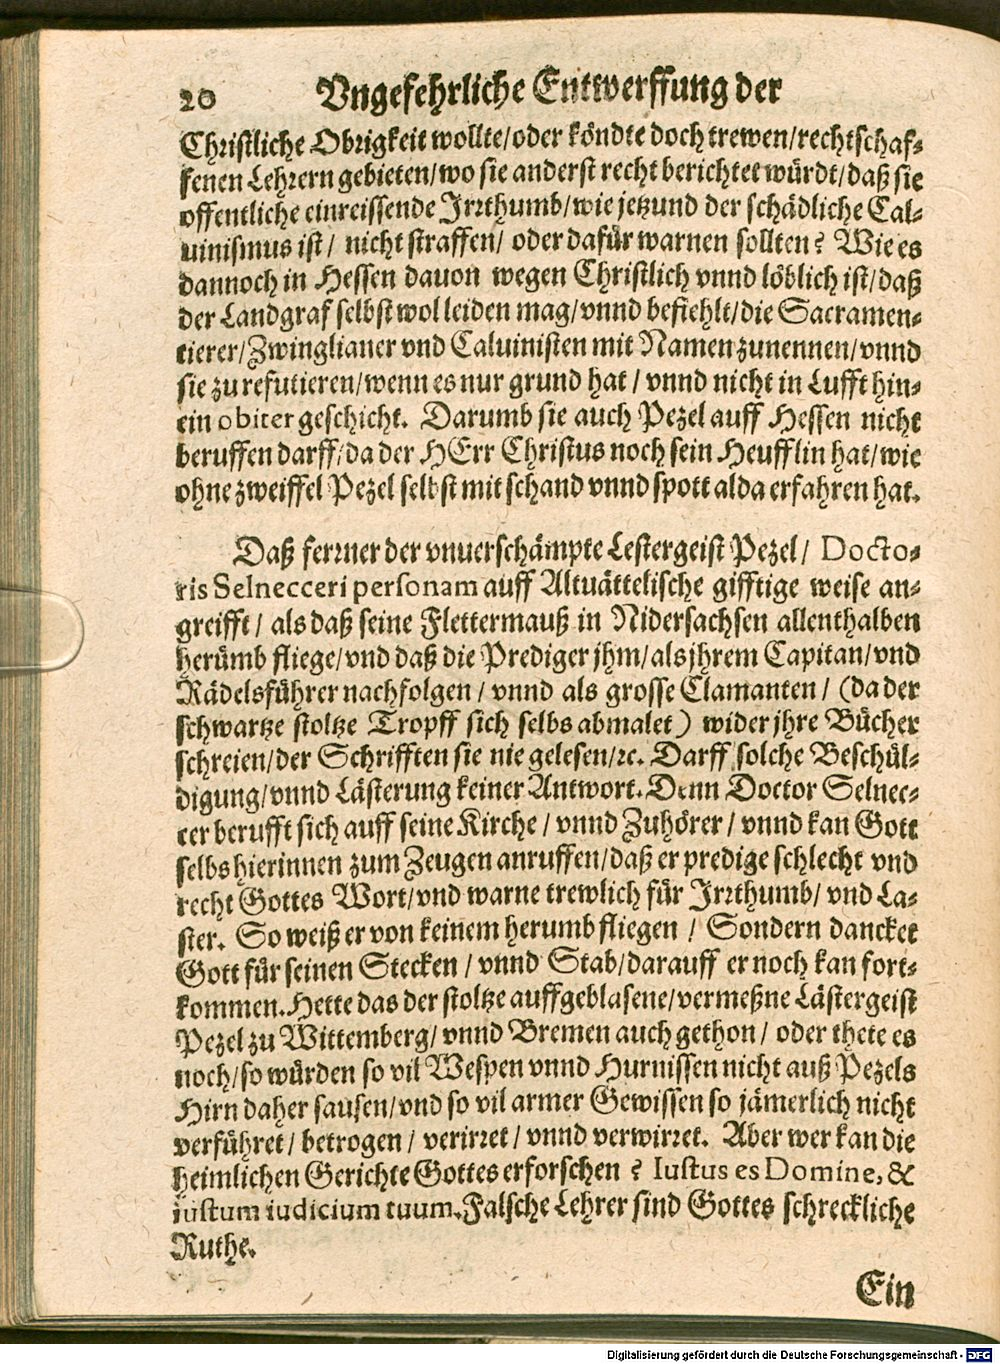 20 Vngefehrliche Entwerffung der
Christliche Obrigkeit wollte/oder köndte doch trewen/rechtschaf⸗
fenen Lehrern gebieten/wo sie anderst recht berichtet würdt/daß sie
offentliche einreissende Irrthumb/wie jetzund der schädliche Cal⸗
uinismus ist/ nicht straffen/ oder dafür warnen sollten? Wie es
dannoch in Hessen dauon wegen Christlich vnnd löblich ist/daß
der Landgraf selbst wol leiden mag/vnnd befiehlt/die Sacramen⸗
tierer/Zwinglianer vnd Caluinisten mit Namen zunennen/vnnd
sie zu refutieren/wenn es nur grund hat / vnnd nicht in Lufft hin⸗
ein obiter geschicht. Darumb sie auch Pezel auff Hessen nicht
beruffen darff/da der HErr Christus noch sein Heufflin hat/wie
ohne zweiffel Pezel selbst mit schand vnnd spott alda erfahren hat.
Daß ferrner der vnuerschämpte Lestergeist Pezel/ Docto⸗
ris Selnecceri personam auff Altuättelische gifftige weise an⸗
greifft/ als daß seine Flettermauß in Nidersachsen allenthalben
herümb fliege/vnd daß die Prediger jhm/als jhrem Capitan/vnd
Rädelsführer nachfolgen / vnnd als grosse Clamanten / (da der
schwartze stoltze Tropff sich selbs abmalet) wider jhre Bücher
schreien/der Schrifften sie nie gelesen/ꝛc. Darff solche Beschül⸗
digung/vnnd Lästerung keiner Antwort. Denn Doctor Selnec⸗
cer berufft sich auff seine Kirche / vnnd Zuhörer / vnnd kan Gott
selbs hierinnen zum Zeugen anruffen/daß er predige schlecht vnd
recht Gottes Wort/vnd warne trewlich für Irrthumb/ vnd La⸗
ster. So weiß er von keinem herumb fliegen / Sondern dancket
Gott für seinen Stecken / vnnd Stab/darauff er noch kan fort⸗
kommen. Hette das der stoltze auffgeblasene/vermeßne Lästergeist
Pezel zu Wittemberg/ vnnd Bremen auch gethon / oder thete es
noch/so würden so vil Wespen vnnd Hurnissen nicht auß Pezels
Hirn daher sausen/vnd so vil armer Gewissen so jämerlich nicht
verführet / betrogen / verirret / vnnd verwirret. Aber wer kan die
heimlichen Gerichte Gottes erforschen? Iustus es Domine, &
iustum iudicium tuum. Falsche Lehrer sind Gottes schreckliche
Ruthe.
Ein
Digitalisierung gefördert durch die Deutsche Forschungsgemeinschaft - DFG